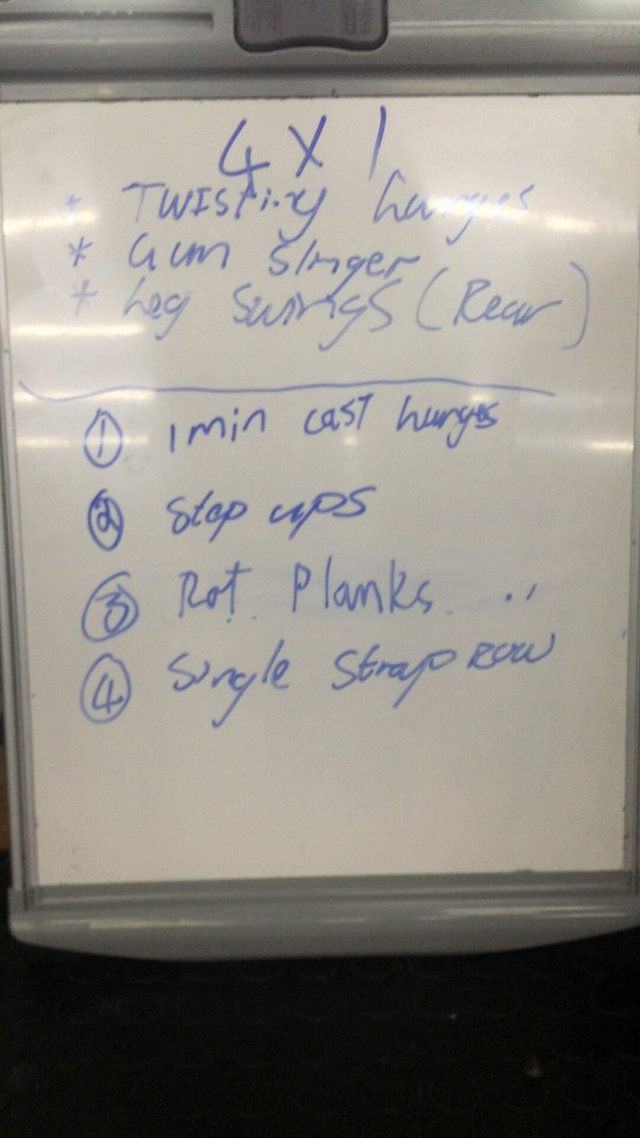 4 X 1
* TWISting Lunges
* Gun Slinger
* Leg Swings (Rear)
① 1 min cast Lunges
② Step ups
③ Rot Planks
④ Single Strap ROW